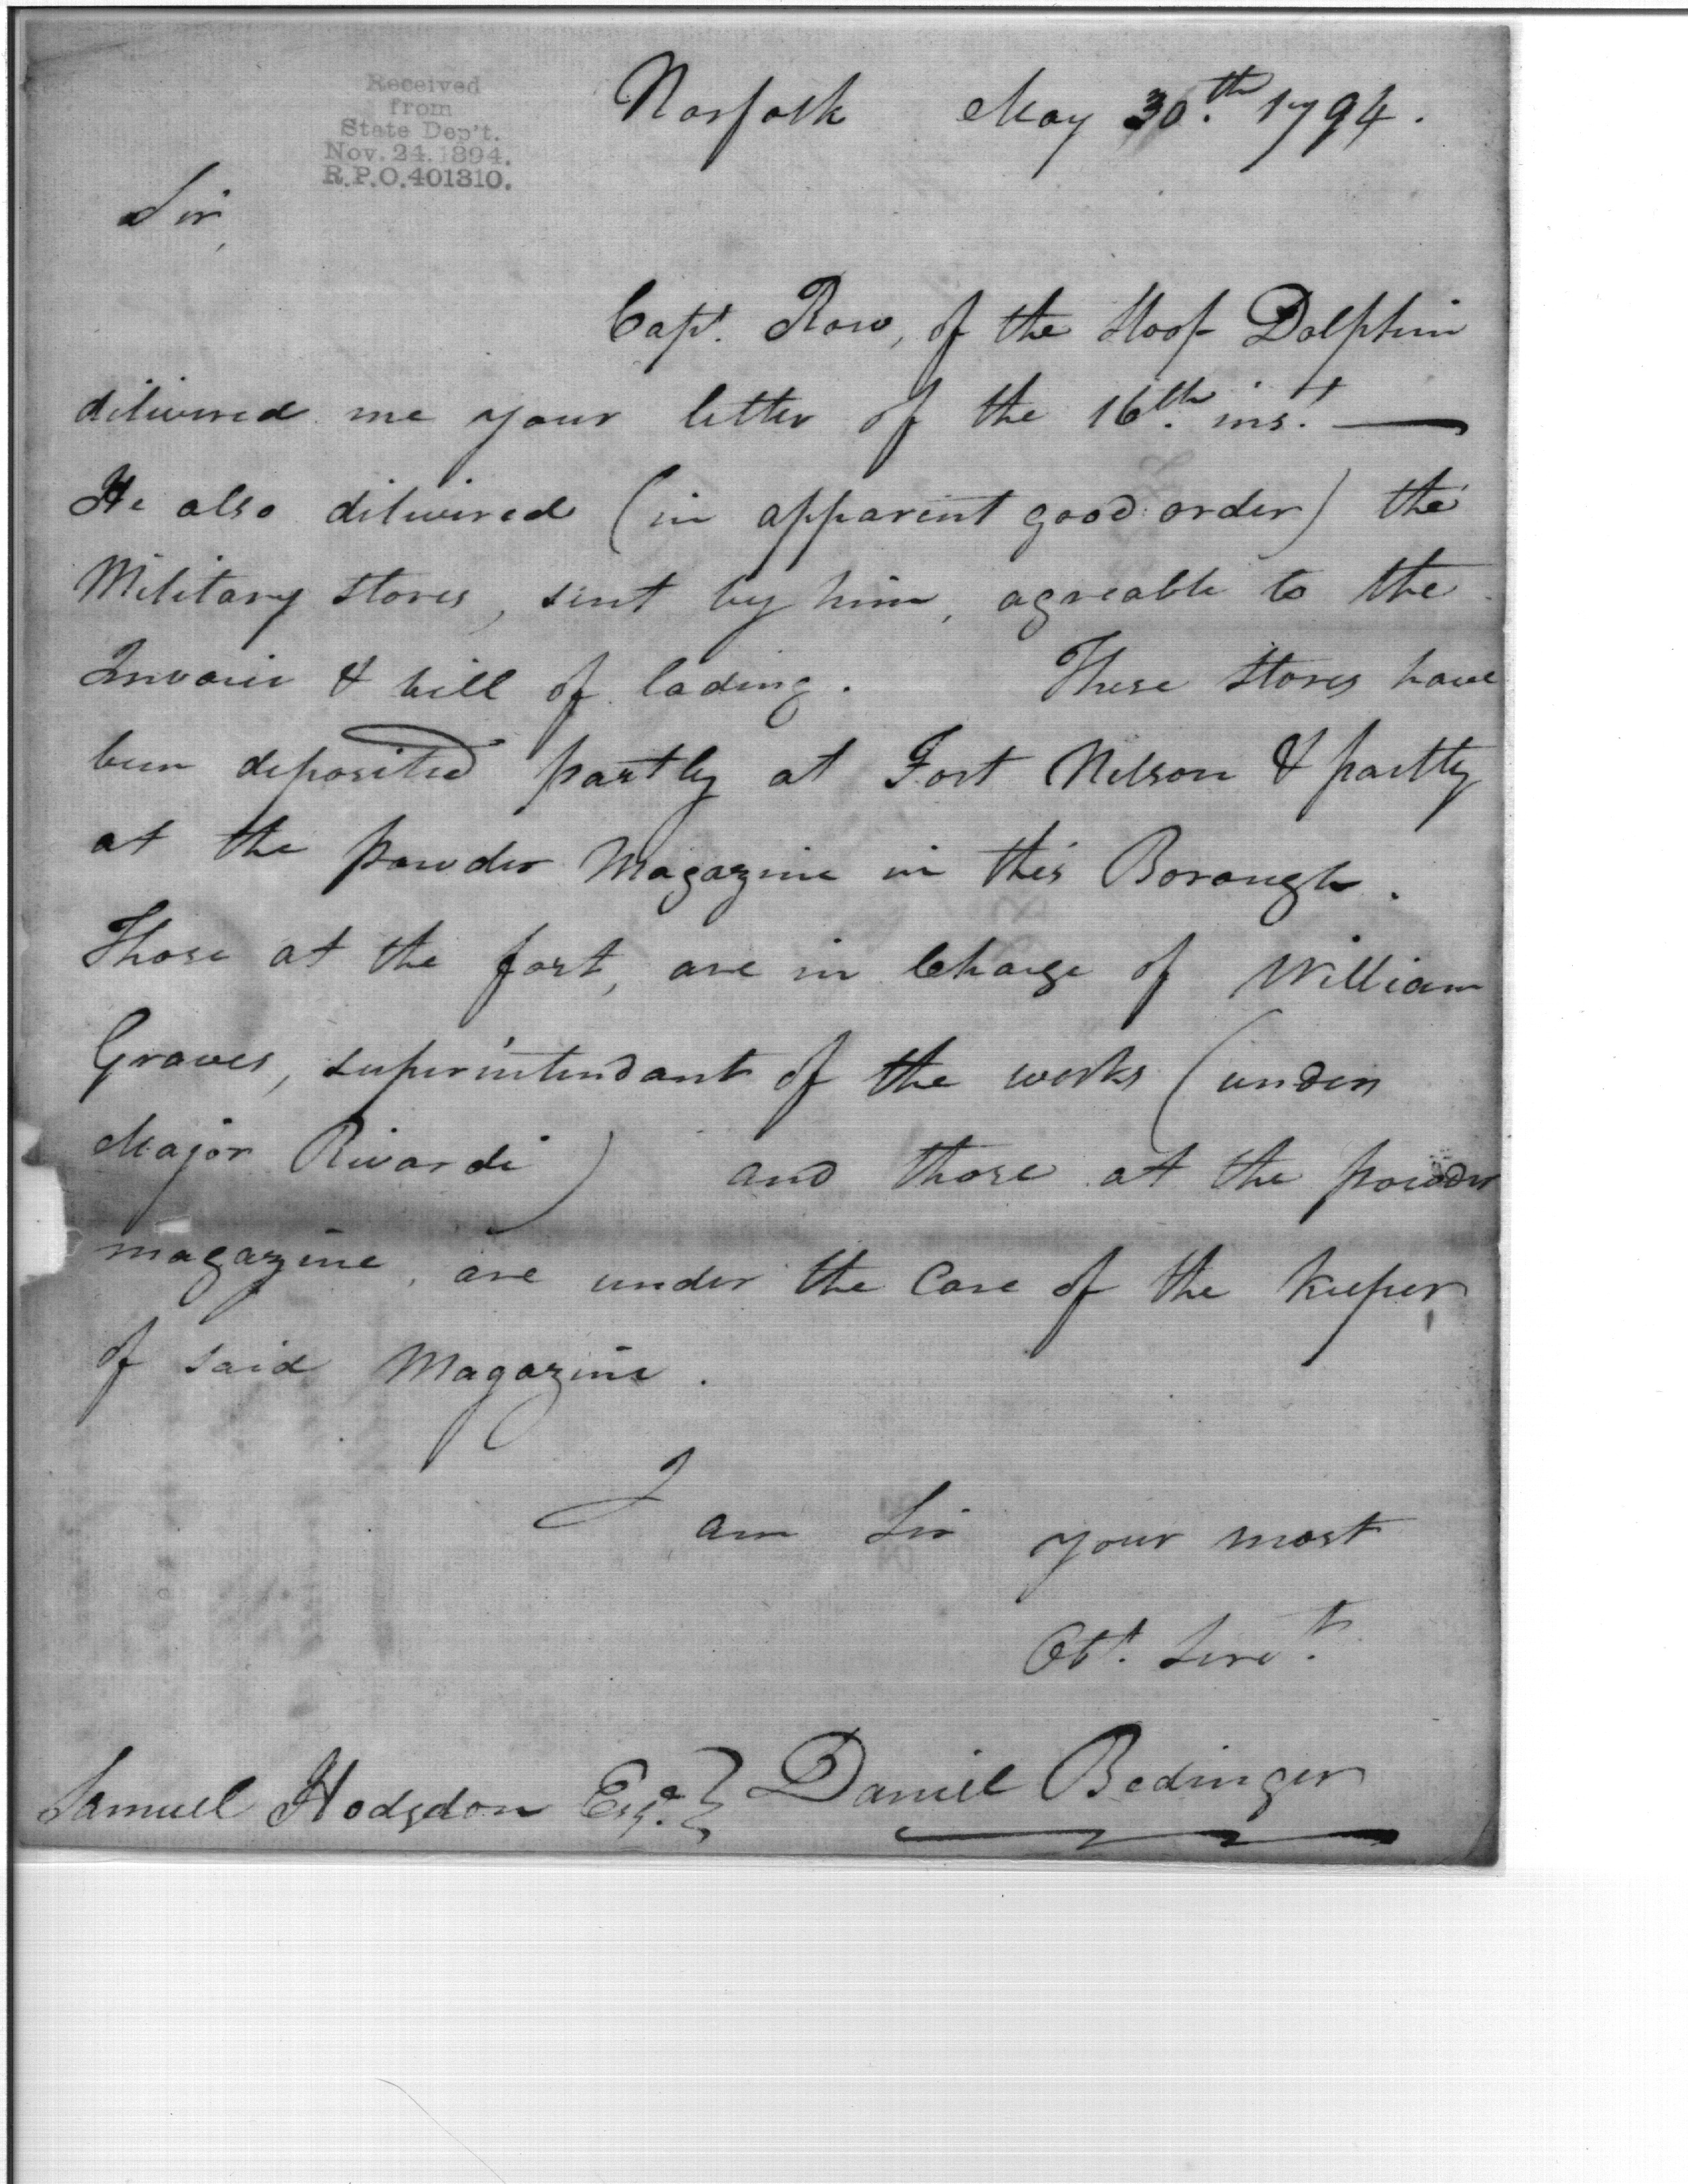 Received
from
State Dep't.
Nov. 24. 1894.
R.P.O. 401310.
Norfolk May 30.th 1794.
Sir,
Capt. Row, of the Sloop Dolphin
dilivered me your letter of the 16th. inst. —
He also dilivered (in apparent good order) the
Military stores, sent by him, agreable to the
Invoice & bill of lading. These stores have
been deposited partly at Fort Nelson & partly
at the powder Magazine in this Borough.
Those at the fort, are in Charge of William
Graves, superintendant of the works (under
Major Rivardi) and those at the powder
magazine, are under the Care of the keeper
of said Magazine.
I am Sir your most
Obt. Servt.
Samuel Hodgdon Esqr. } Daniel Bedinger